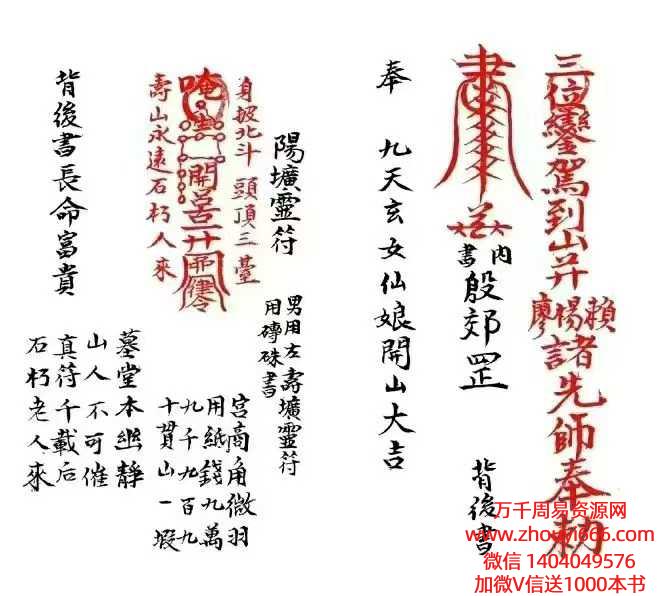 三位鑾駕到山并
廖楊賴
諸先師奉勑
内書
殷郊罡
背後書
奉 九天玄女仙娘開山大吉
陽壙靈符
男用左壽壙靈符
用磚硃書
宮商角徵羽
用紙錢九萬
九千九百九
十貫山一塅
身披北斗 頭頂三臺
唵
開
壽山永遠石朽人來
背後書長命富貴
墓堂本幽靜
山人不可催
真符千載后
石朽老人來
万千周易资源网
www.zhouyi666.com
微信 1404049576
加微V信送1000本书